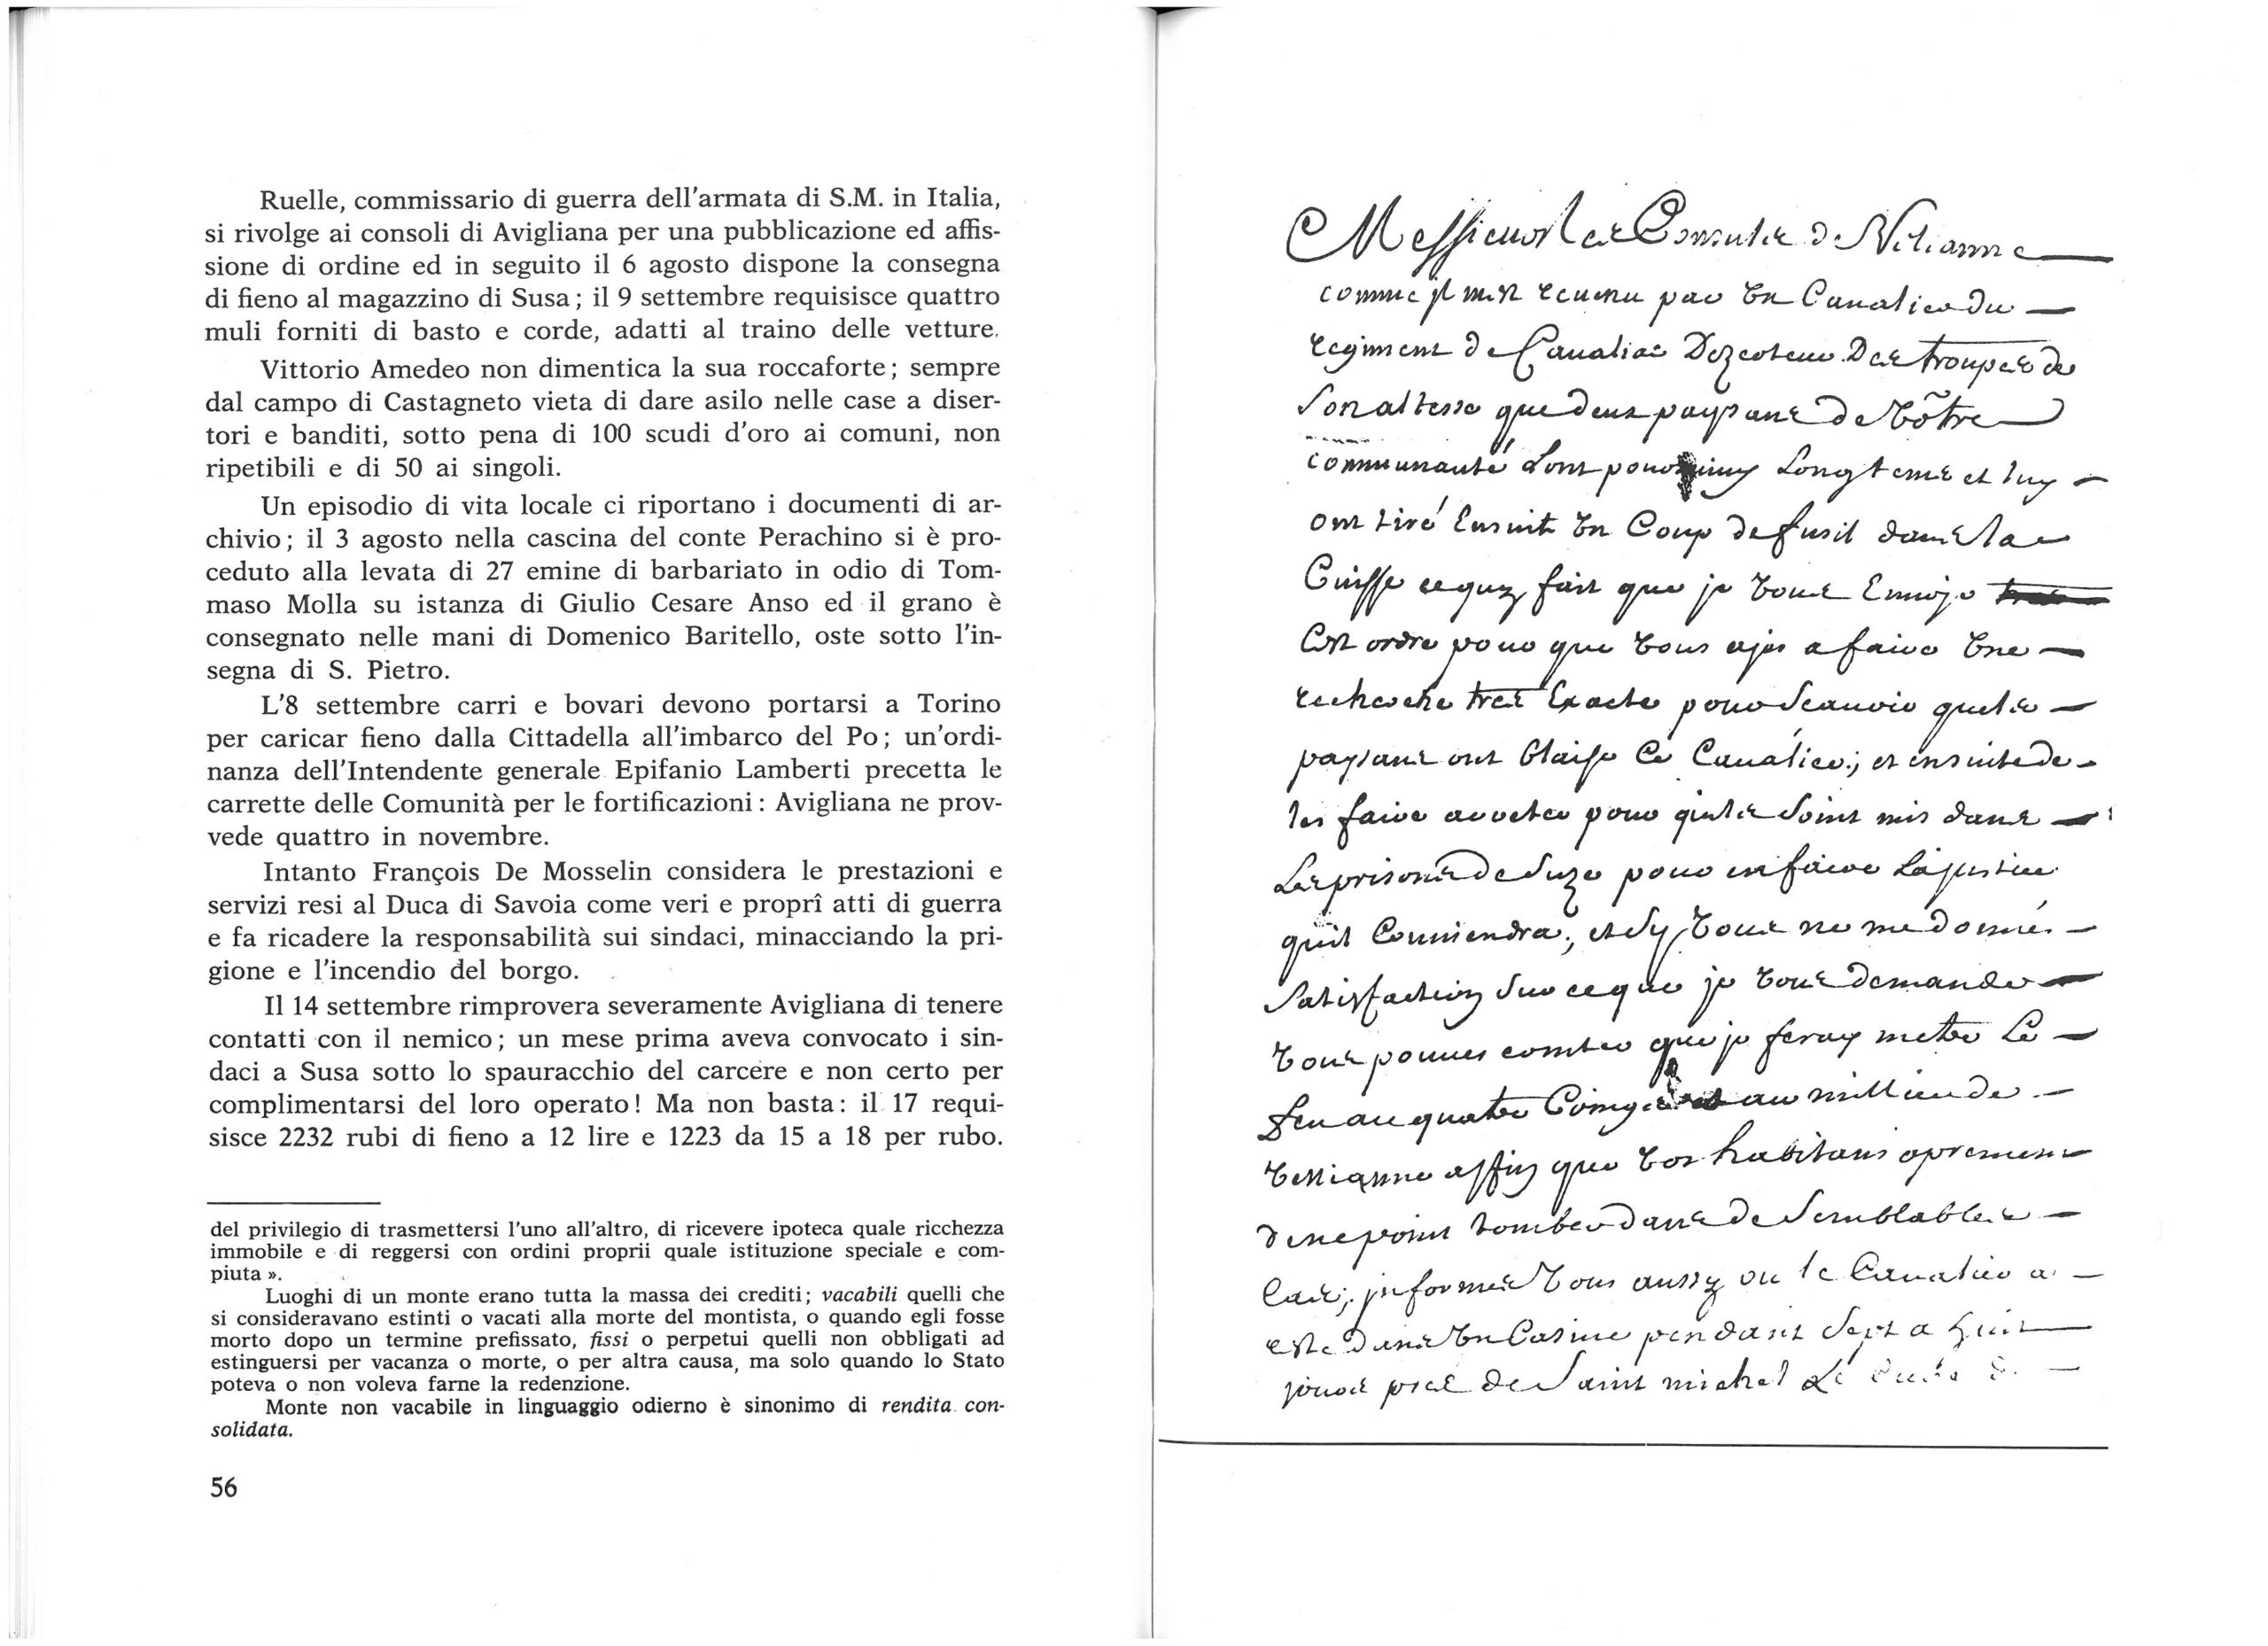 Ruelle, commissario di guerra dell'armata di S.M. in Italia,
si rivolge ai consoli di Avigliana per una pubblicazione ed affis-
sione di ordine ed in seguito il 6 agosto dispone la consegna
di fieno al magazzino di Susa; il 9 settembre requisisce quattro
muli forniti di basto e corde, adatti al traino delle vetture.
Vittorio Amedeo non dimentica la sua roccaforte; sempre
dal campo di Castagneto vieta di dare asilo nelle case a diser-
tori e banditi, sotto pena di 100 scudi d'oro ai comuni, non
ripetibili e di 50 ai singoli.
Un episodio di vita locale ci riportano i documenti di ar-
chivio; il 3 agosto nella cascina del conte Perachino si è pro-
ceduto alla levata di 27 emine di barbariato in odio di Tom-
maso Molla su istanza di Giulio Cesare Anso ed il grano è
consegnato nelle mani di Domenico Baritello, oste sotto l'in-
segna di S. Pietro.
L'8 settembre carri e bovari devono portarsi a Torino
per caricar fieno dalla Cittadella all'imbarco del Po; un'ordi-
nanza dell'Intendente generale Epifanio Lamberti precetta le
carrette delle Comunità per le fortificazioni: Avigliana ne prov-
vede quattro in novembre.
Intanto François De Mosselin considera le prestazioni e
servizi resi al Duca di Savoia come veri e proprî atti di guerra
e fa ricadere la responsabilità sui sindaci, minacciando la pri-
gione e l'incendio del borgo.
Il 14 settembre rimprovera severamente Avigliana di tenere
contatti con il nemico; un mese prima aveva convocato i sin-
daci a Susa sotto lo spauracchio del carcere e non certo per
complimentarsi del loro operato! Ma non basta: il 17 requi-
sisce 2232 rubi di fieno a 12 lire e 1223 da 15 a 18 per rubo.
del privilegio di trasmettersi l'uno all'altro, di ricevere ipoteca quale ricchezza
immobile e di reggersi con ordini proprii quale istituzione speciale e com-
piuta ».
Luoghi di un monte erano tutta la massa dei crediti; vacabili quelli che
si consideravano estinti o vacati alla morte del montista, o quando egli fosse
morto dopo un termine prefissato, fissi o perpetui quelli non obbligati ad
estinguersi per vacanza o morte, o per altra causa, ma solo quando lo Stato
poteva o non voleva farne la redenzione.
Monte non vacabile in linguaggio odierno è sinonimo di rendita con-
solidata.
56
Messieurs les Consules de
comme il mest reuenu par vn Caualier du
regiment de Caualrie Dezerteur Des troupes de
son altesse que deux paysans de vôtre
communauté lont longtems et luy
ont tiré Ensuite vn Coup de fusil dans la
Cuisse ce quy fait que je vous Enuoje
Cest ordre pour que vous ajes a faire vne
recherche tres Exacte pour scauoir quels
paysans ont blaissé Ce Caualier; et ensuite de
les faire arreter pour quils soint mis dans
Les prisons de Suze pour en faire La justice
quil Conuiendra; et sy vous ne me donnés
satisfaction sur ce que je vous demande
vous pouues comter que je feray metre Le
feu au quatre au millieu de
affin que vos habitans aprenent
de ne point tomber dans de semblables
Cas; jnformes vous aussy ou le Caualier a
esté dans vn Casine pendant sept a huit
jours pres de Saint michel